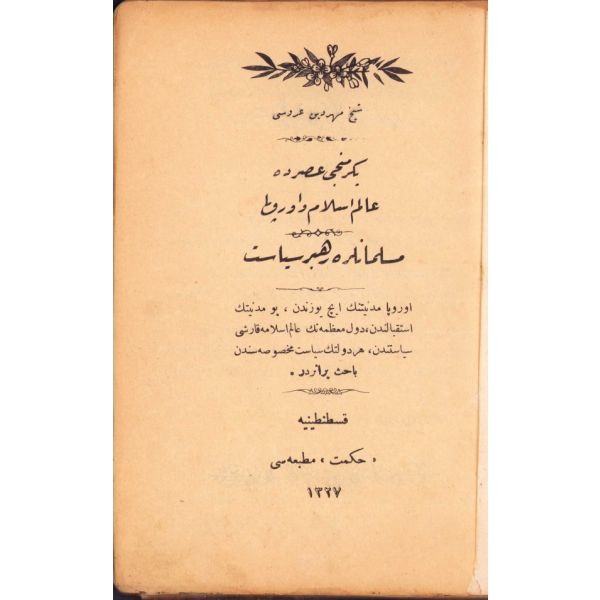 شیخ مهردین عروسی
یکرمنجی عصرده
عالم اسلام و اوروپا
مسلمانلره رهبر سیاست
اوروپا مدنیتنك ایچ یوزندن ، بو مدنیتك
استقبالندن، دول معظمه‌نك عالم اسلامه قارشی
سیاستندن، هر دولتك سیاست مخصوصه سندن
باحث بر اثردر .
قسطنطینیه
« حکمت » مطبعه سی
١٣٢٧